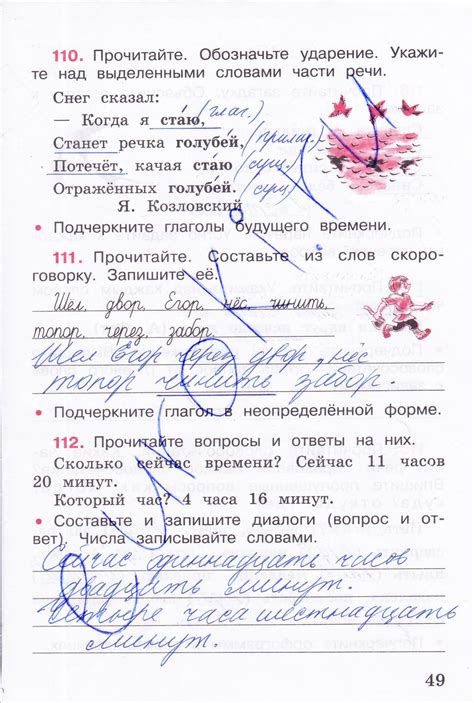 110. Прочитайте. Обозначьте ударение. Укажи-
те над выделенными словами части речи.
Снег сказал:
— Когда я стаю, (глаг.)
Станет речка голубей, (прилаг.)
Потечёт, качая стаю (сущ.)
Отражённых голубей. (сущ.)
Я. Козловский
• Подчеркните глаголы будущего времени.
111. Прочитайте. Составьте из слов скоро-
говорку. Запишите её.
Шёл, двор, Егор, нёс, чинить,
топор, через, забор.
Шёл Егор через двор, нёс
топор чинить забор.
• Подчеркните глагол в неопределённой форме.
112. Прочитайте вопросы и ответы на них.
Сколько сейчас времени? Сейчас 11 часов
20 минут.
Который час? 4 часа 16 минут.
• Составьте и запишите диалоги (вопрос и от-
вет). Числа записывайте словами.
Сейчас одиннадцать часов
двадцать минут.
Четыре часа шестнадцать
минут.
49